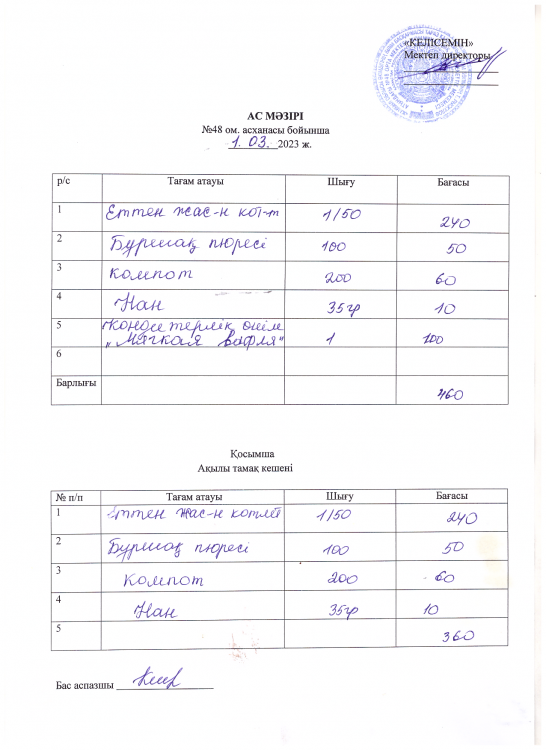 «КЕЛІСЕМІН»
Мектеп директоры
АС МӘЗІРІ
№48 ом. асханасы бойынша
1. 03. 2023 ж.
р/с Тағам атауы Шығу Бағасы
1 Еттен жас-н кот-т 1/50 240
2 Бұршақ пюресі 100 50
3 Компот 200 60
4 Нан 35гр 10
5 Кондитерлік өнім
„Мягкая вафля“ 1 100
6
Барлығы 460
Қосымша
Ақылы тамақ кешені
№ п/п Тағам атауы Шығу Бағасы
1 Еттен жас-н котлет 1/50 240
2 Бұршақ пюресі 100 50
3 Компот 200 60
4 Нан 35гр 10
5 360
Бас аспазшы